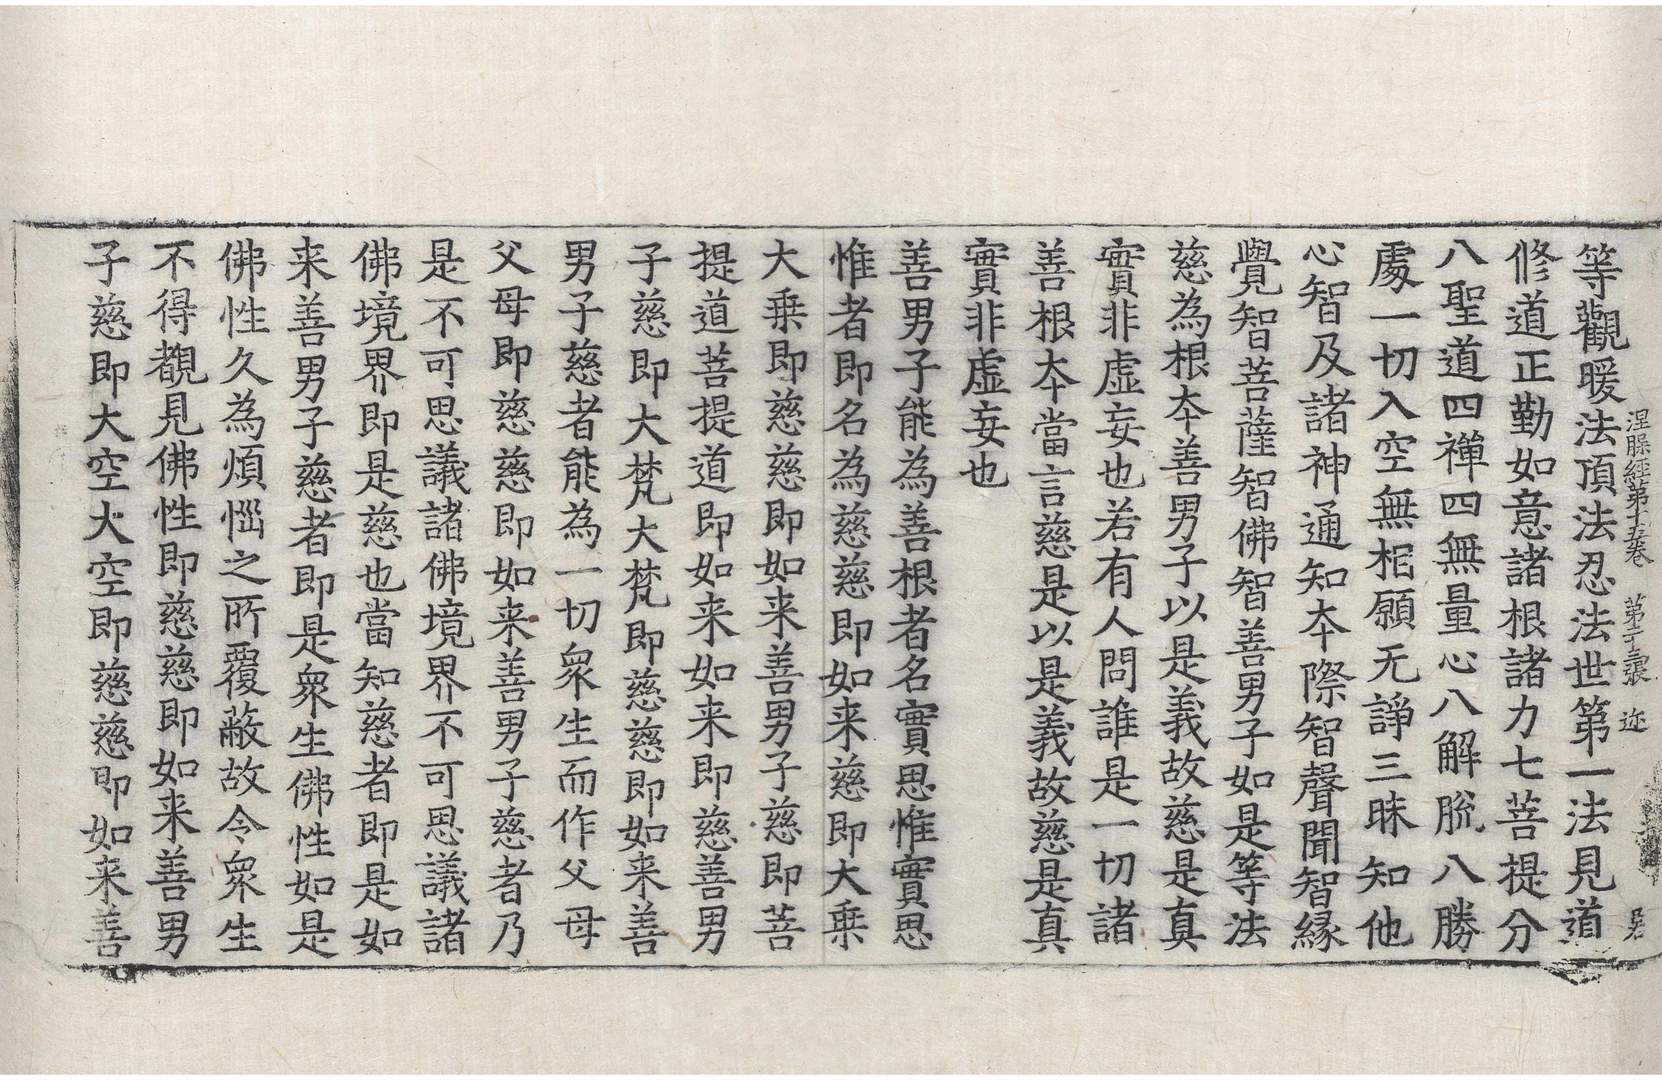 涅槃經第十五卷 第十三張 迩
等觀暖法頂法忍法世第一法見道
修道正勤如意諸根諸力七菩提分
八聖道四禪四無量心八解脫八勝
處一切入空無相願无諍三昧知他
心智及諸神通知本際智聲聞智緣
覺智菩薩智佛智善男子如是等法
慈為根本善男子以是義故慈是真
實非虛妄也若有人問誰是一切諸
善根本當言慈是以是義故慈是真
實非虛妄也
善男子能為善根者名實思惟實思
惟者即名為慈慈即如来慈即大乗
大乗即慈慈即如来善男子慈即菩
提道菩提道即如来如来即慈善男
子慈即大梵大梵即慈慈即如来善
男子慈者能為一切衆生而作父母
父母即慈慈即如来善男子慈者乃
是不可思議諸佛境界不可思議諸
佛境界即是慈也當知慈者即是如
来善男子慈者即是衆生佛性如是
佛性久為煩惱之所覆蔽故令衆生
不得覩見佛性即慈慈即如来善男
子慈即大空大空即慈慈即如来善